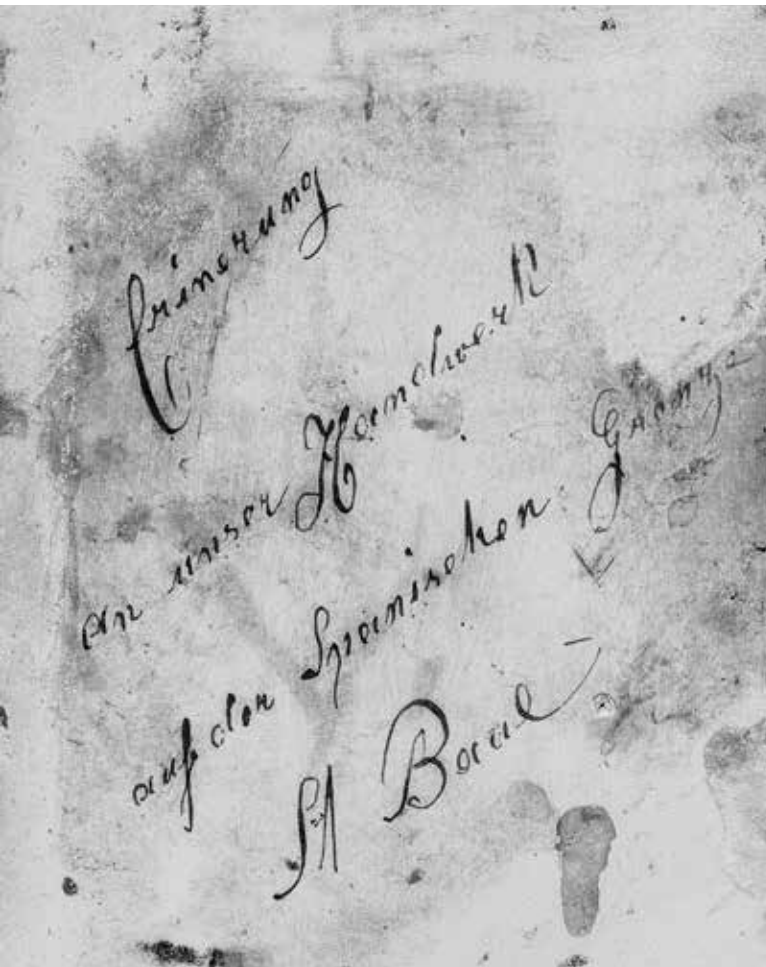 Erinerung
an unser Handwerk
auf der Spanischen Gränze
A Baal